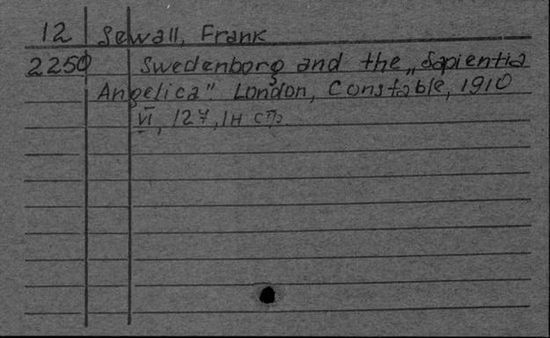 12 Sewall, Frank
2250 Swedenborg and the „Sapientia
Angelica" London, Constable, 1910
VI, 127, 1H cm